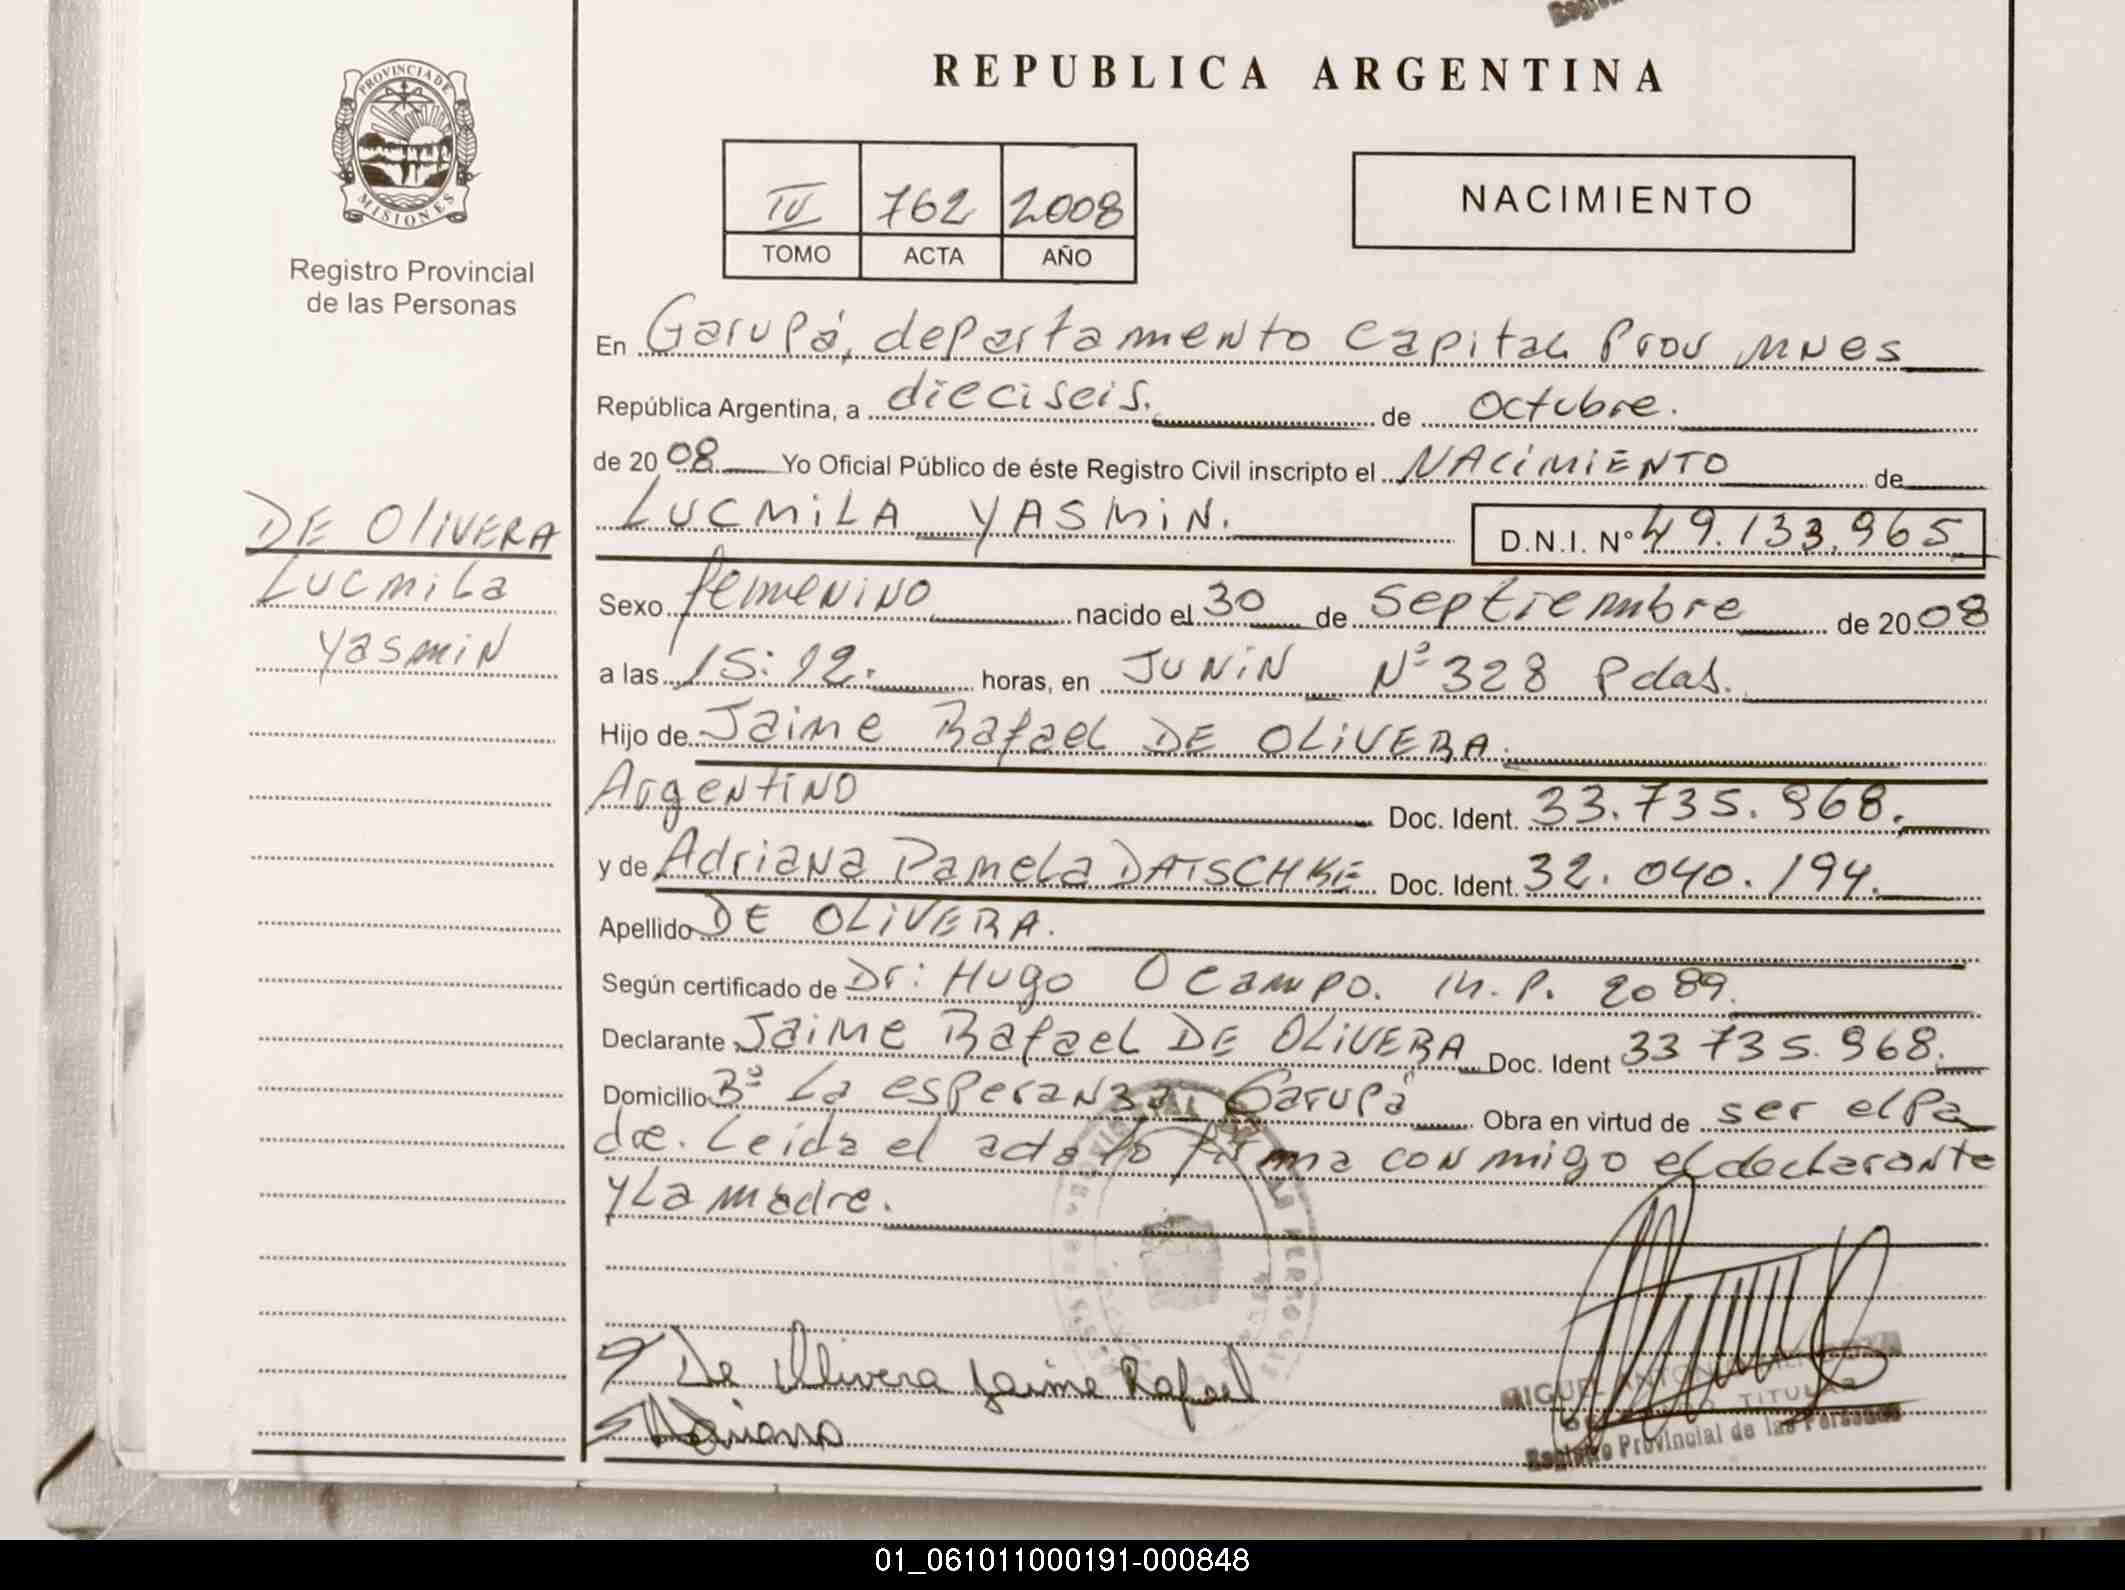 REPUBLICA ARGENTINA
PROVINCIA DE
MISIONES
Registro Provincial
de las Personas
IV 762 2008
TOMO ACTA AÑO
NACIMIENTO
En Garupá, departamento Capital Prov Mnes
República Argentina, a dieciseis. de octubre.
de 2008 Yo Oficial Público de éste Registro Civil inscripto el NACIMIENTO de
LUCMILA YASMIN. D.N.I. Nº 49.133.965
DE OLIVERA
Lucmila
Yasmin
Sexo femenino nacido el 30 de Septiembre de 2008
a las 15:12. horas, en JUNIN Nº 328 Pdas.
Hijo de Jaime Rafael DE OLIVERA.
Argentino Doc. Ident. 33.735.968.
y de Adriana Pamela DATSCHKE Doc. Ident. 32.040.194.
Apellido DE OLIVERA.
Según certificado de Dr: Hugo Ocampo. M.P. 2089.
Declarante Jaime Rafael DE OLIVERA Doc. Ident 33 735.968.
Domicilio Bº La esperanza Garupá Obra en virtud de ser el Pa
dre. Leida el acta lo firma con migo el declarante
y La madre.
De Olivera Jaime Rafael
Adriana
MIGUEL ANTONIO
TITULAR
Registro Provincial de las Personas
01_061011000191-000848